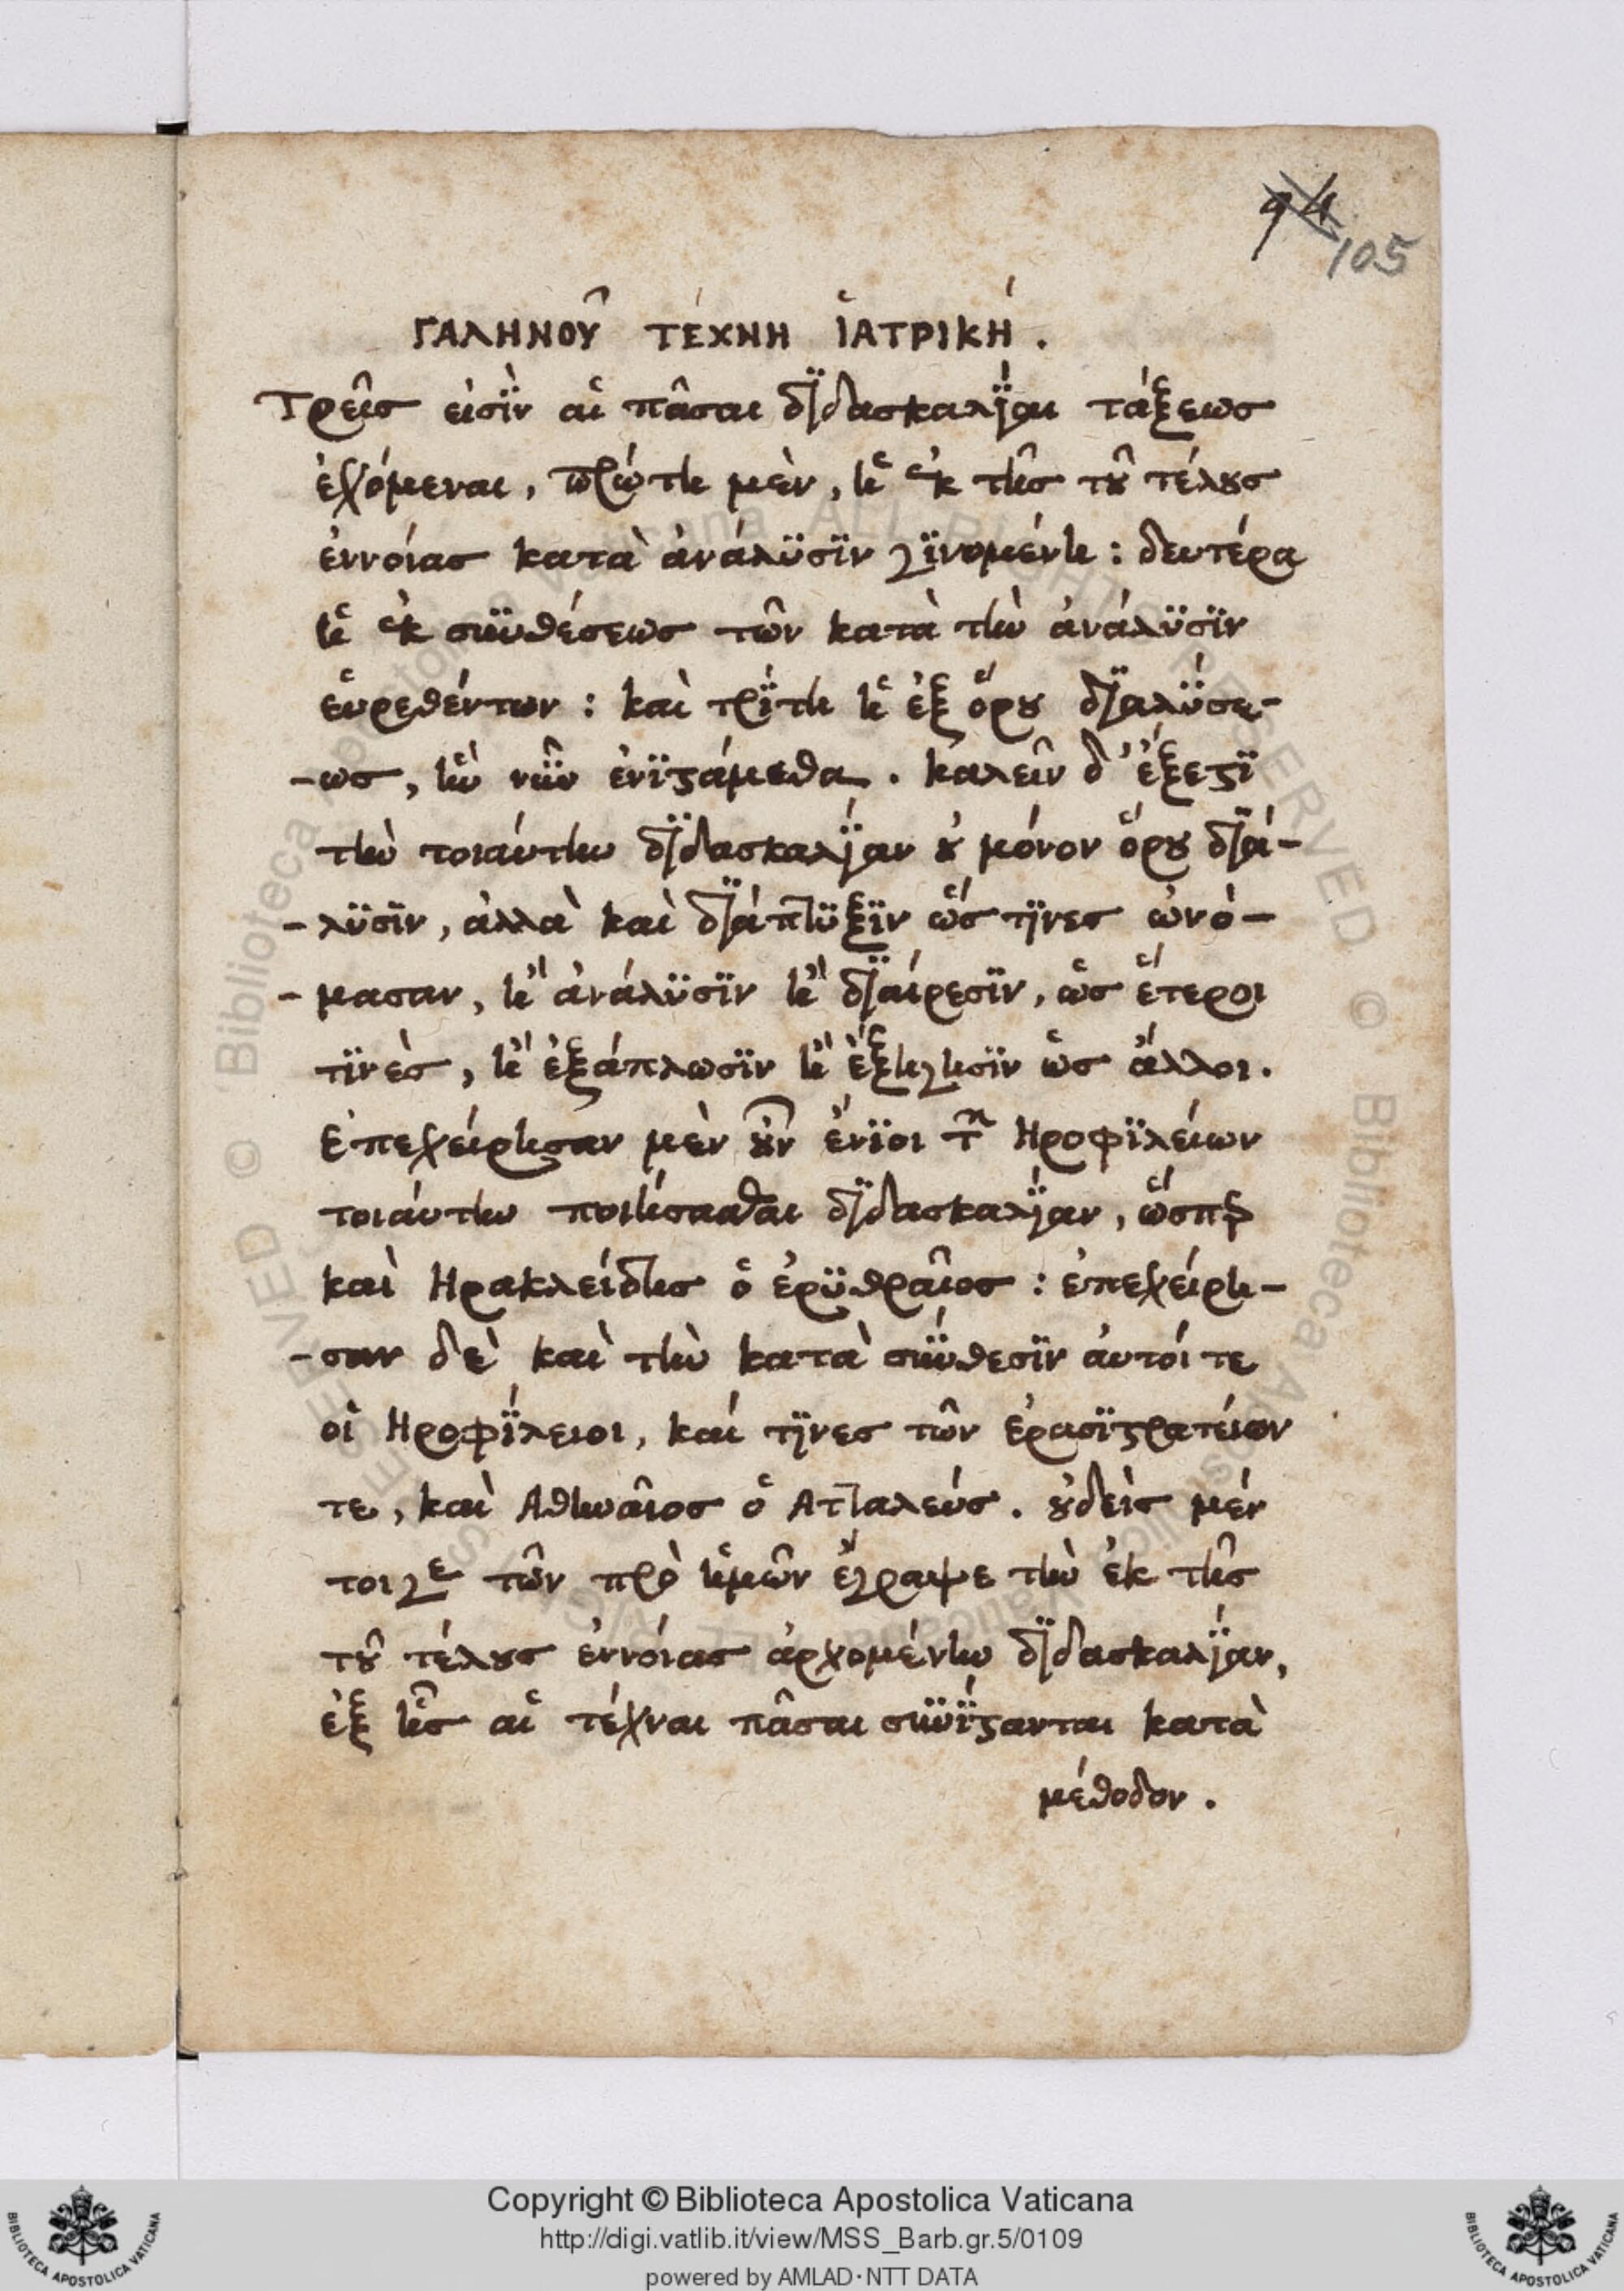 94
105
ΓΑΛΗΝΟΥ͂ ΤΈΧΝΗ ἸΑΤΡΙΚΉ.
Τρεῖς εἰσῒν αἱ πᾶσαι δϊδασκαλΐαι τάξεως
ἐχόμεναι, πρώτη μὲν, ἡ ἐκ τῆς τοῦ τέλους
ἐννοίας κατὰ ἀνάλϋσϊν γϊνομένη: δευτέρα
ἡ ἐκ συνθέσεως τῶν κατὰ τὴν ἀνάλϋσϊν
εὑρεθέντων: καὶ τρΐτη ἡ ἐξ ὅρου δϊαλΰσε-
-ως, ἣν νῦν ἐνϊστάμεθα. καλεῖν δ' ἔξεστϊ
τὴν τοιαύτην δϊδασκαλΐαν οὐ μόνον ὅρου δϊά-
-λϋσϊν, ἀλλὰ καὶ δϊάπτϋξϊν ὥς τΐνες ὠνό-
-μασαν, ἢ ἀνάλϋσϊν ἢ δϊαίρεσϊν, ὡς ἕτεροι
τϊνὲς, ἢ ἐξάπλωσϊν ἢ ἐξήγησϊν ὡς ἄλλοι.
Ἐπεχείρησαν μὲν οὖν ἔνϊοι τῶν Ηροφϊλείων
τοιαύτην ποιήσασθαι δϊδασκαλΐαν, ὥσπερ
καὶ Ηρακλείδης ὁ ἐρϋθραῖος: ἐπεχείρη-
-σαν δὲ καὶ τὴν κατὰ σύνθεσϊν ἀυτοί τε
οἱ Ηροφΐλειοι, καί τΐνες τῶν ἐρασϊστρατείων
τε, καὶ Αθηναῖος ὁ Ατταλεύς. οὐδεὶς μέν
τοιγε τῶν πρὸ ἡμῶν ἔγραψε τὴν ἐκ τῆς
τοῦ τέλους ἐννοίας ἀρχομένην δϊδασκαλΐαν,
ἐξ ἧς αἱ τέχναι πᾶσαι συνΐστανται κατὰ
μέθοδον.
© Biblioteca Apostolica Vaticana ALL RIGHTS RESERVED
Copyright © Biblioteca Apostolica Vaticana
http://digi.vatlib.it/view/MSS_Barb.gr.5/0109
powered by AMLAD·NTT DATA
BIBLIOTECA APOSTOLICA VATICANA
BIBLIOTECA APOSTOLICA VATICANA